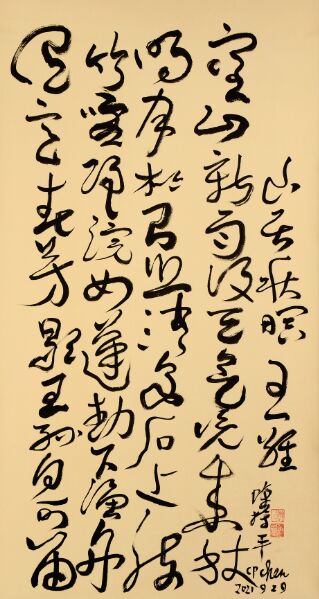 山居秋暝 王維
空山新雨後天氣晚來秋
明月松間照清泉石上流
竹喧歸浣女蓮動下漁舟
隨意春芳歇王孫自可留
陳 平
CP chen
2021 9 29